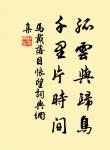 孤雲與歸鳥
千里片時間
馬戴落日悵望詞典網
集